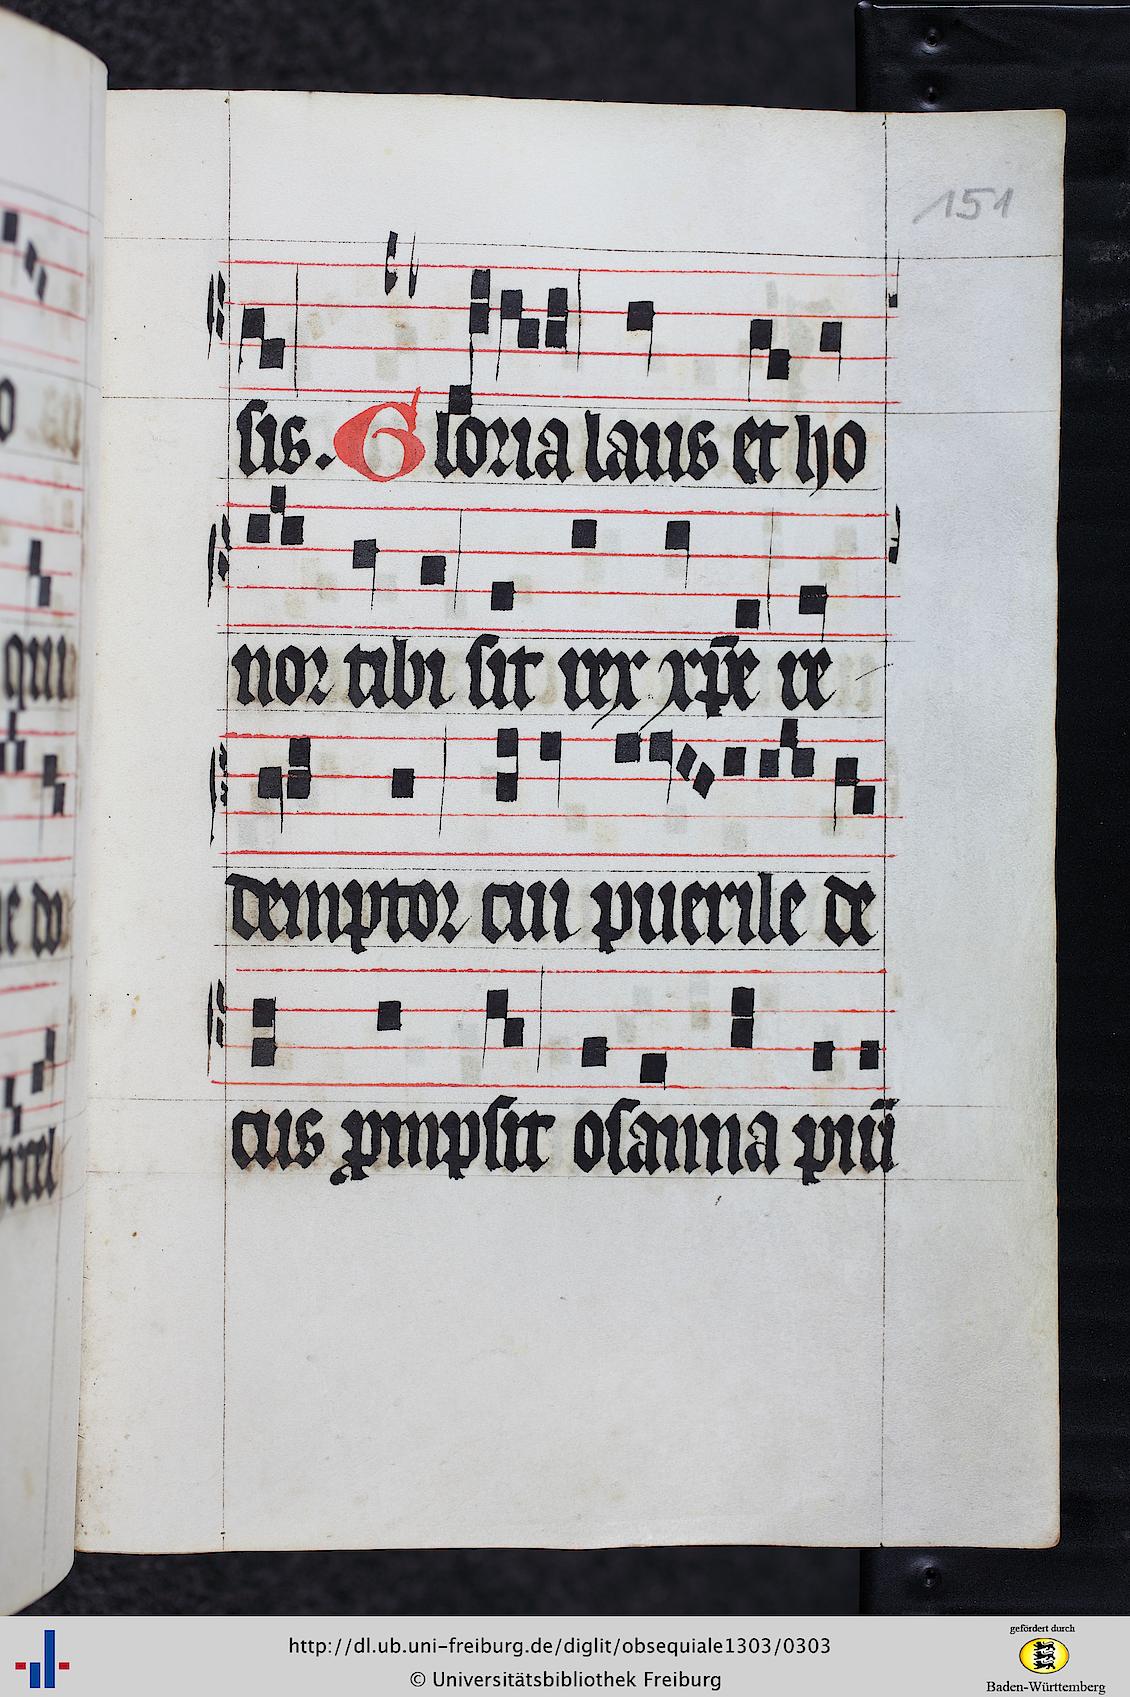 151
sis. Gloria laus et ho
nor tibi sit rex xp̄e re
demptor cui puerile de
cus ꝓmpsit osanna piū
http://dl.ub.uni-freiburg.de/diglit/obsequiale1303/0303
© Universitätsbibliothek Freiburg
gefördert durch
Baden-Württemberg